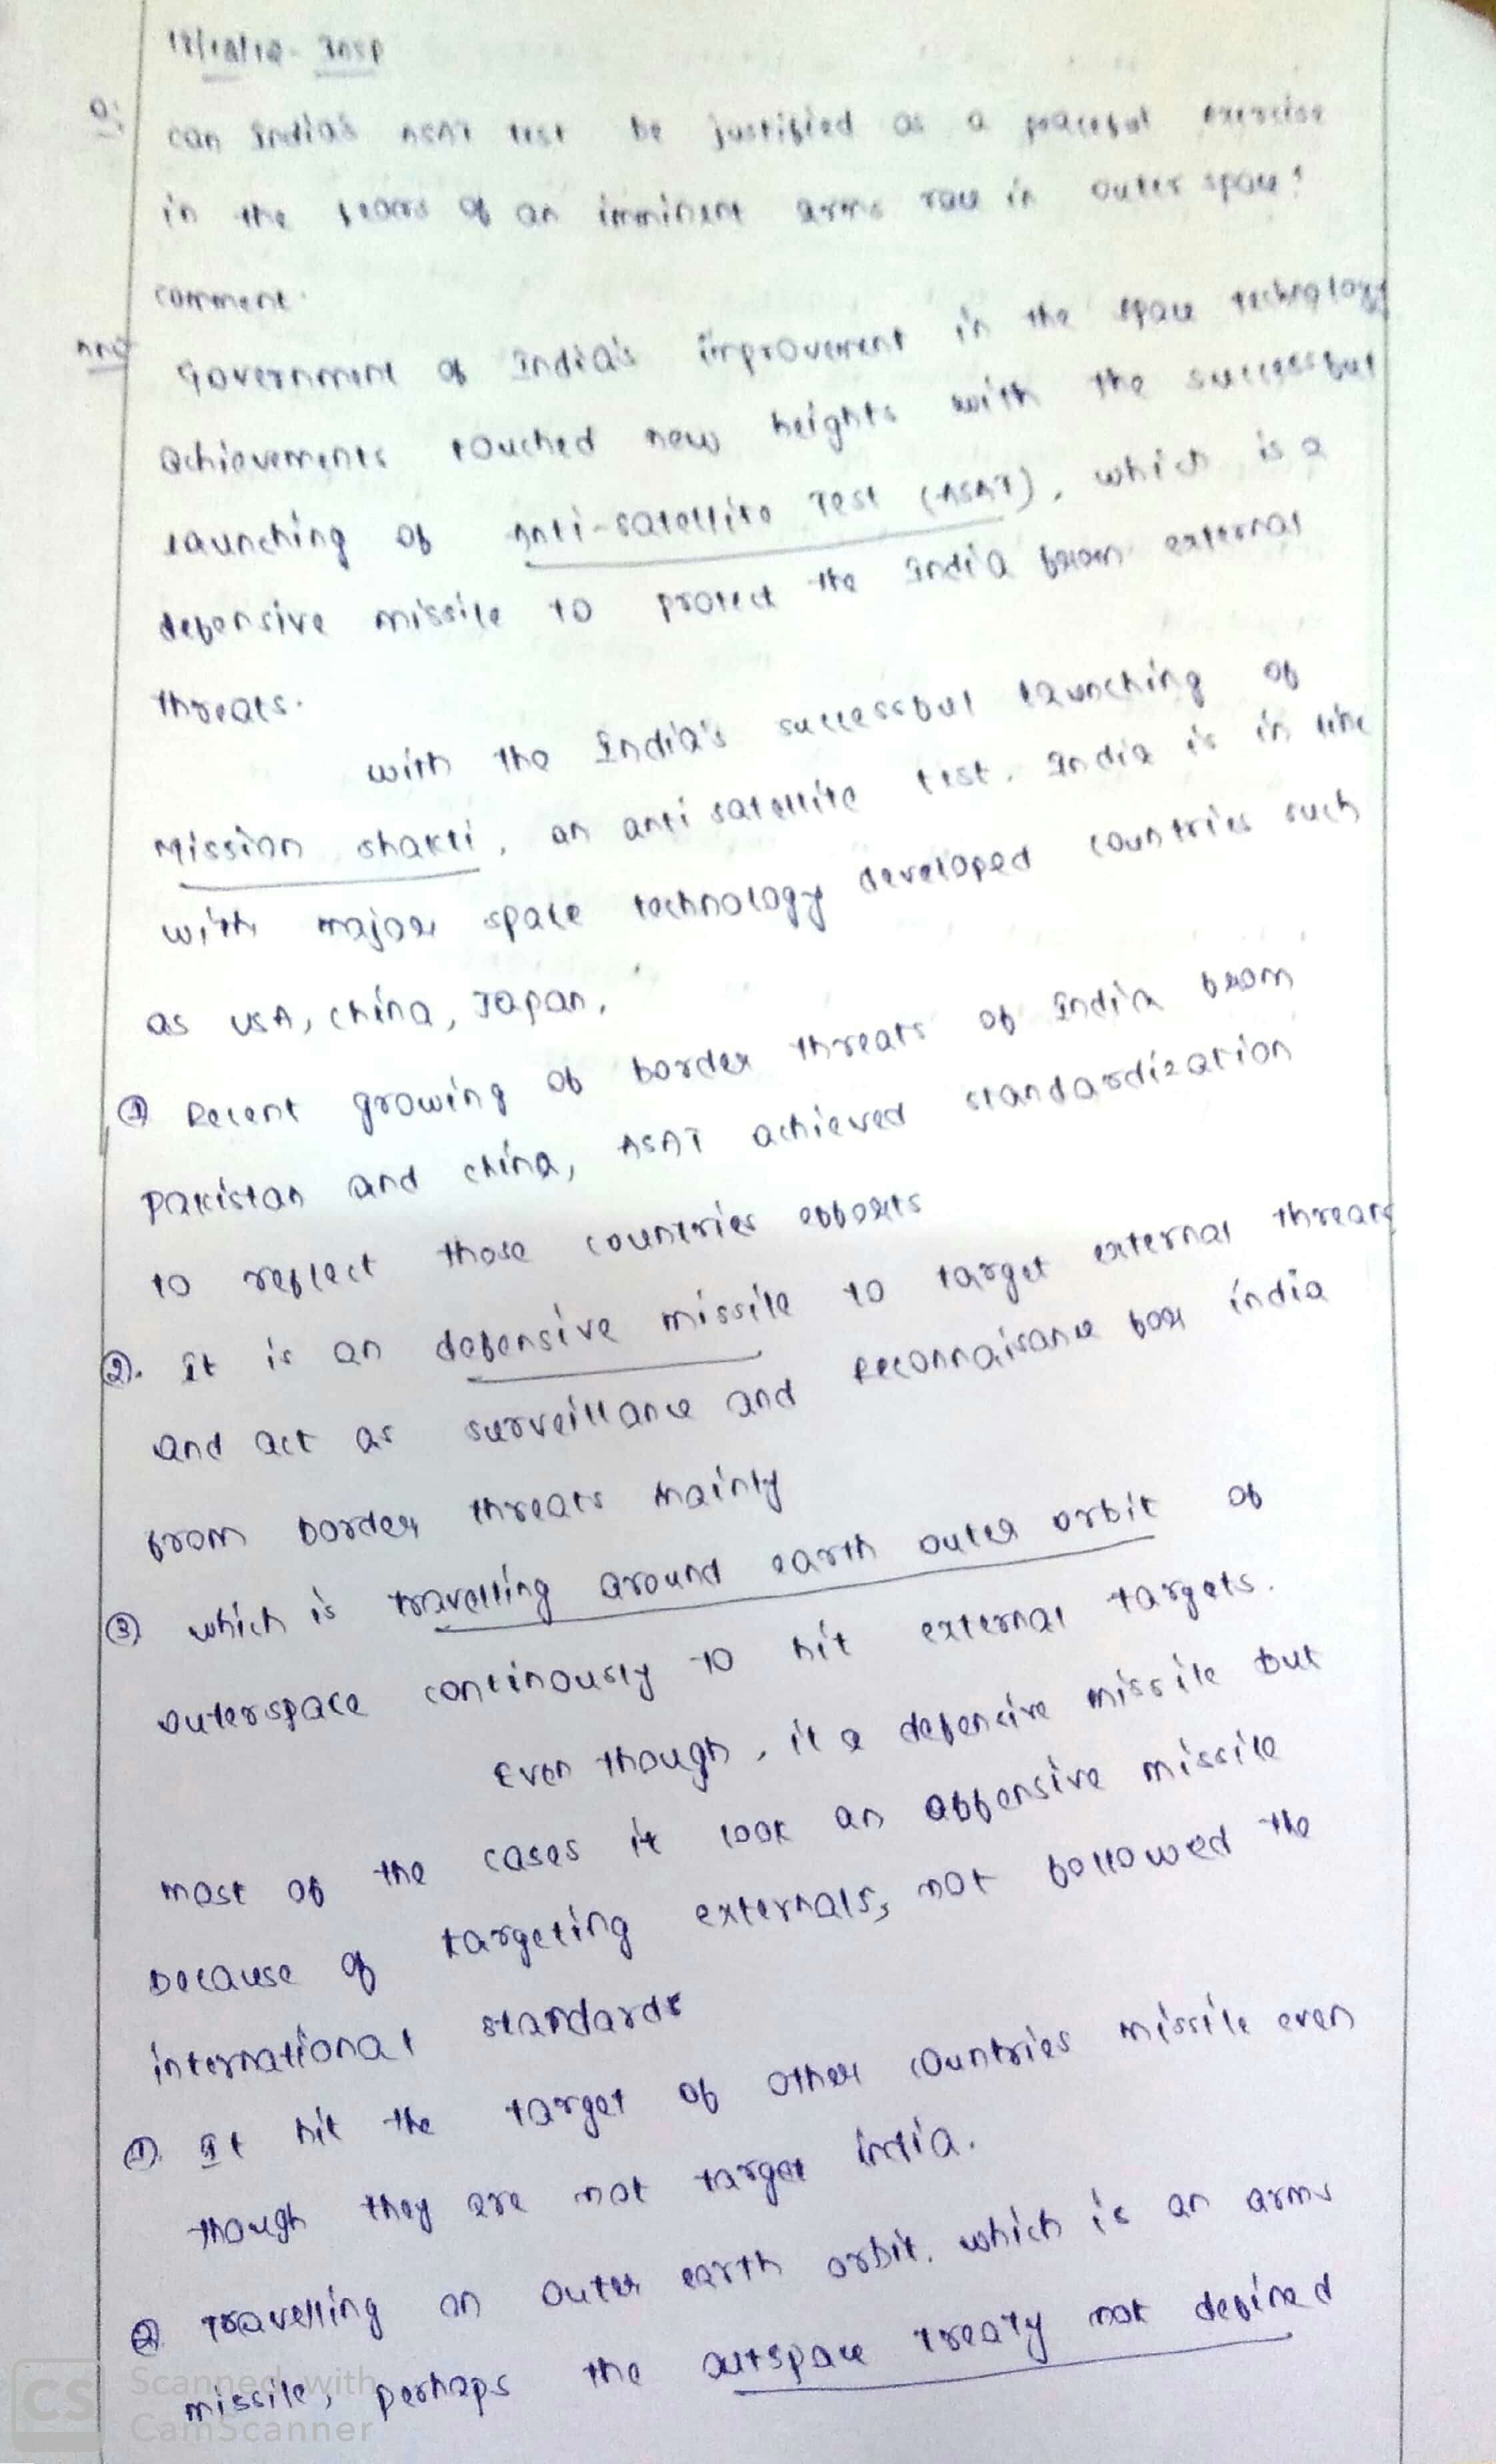 Insp
Q: can India's ASAT test be justified as a peaceful exercise
in the fears of an imminent arms race in outer space?
comment.
Ans Government of India's improvement in the space technology
achievements touched new heights with the successful
launching of Anti-satellite Test (ASAT), which is a
defensive missile to protect the India from external
threats.
with the India's successful launching of
Mission shakti, an anti satellite test. India is in line
with major space technology developed countries such
as USA, China, Japan.
① Recent growing of border threats of India from
Pakistan and china, ASAT achieved standardization
to reflect those countries efforts
②. It is an defensive missile to target external threats
and act as surveillance and reconnaisance for india
from border threats mainly
③ which is travelling around earth outer orbit of
outerspace continously to hit external targets.
Even though, it a defensive missile but
most of the cases it look an offensive missile
because of targeting externals, not followed the
international standards
①. It hit the target of other countries missile even
though they are not target india.
② Travelling on outer earth orbit. which is an arms
missile, perhaps the outspace treaty not defined
CS Scanned with
CamScanner